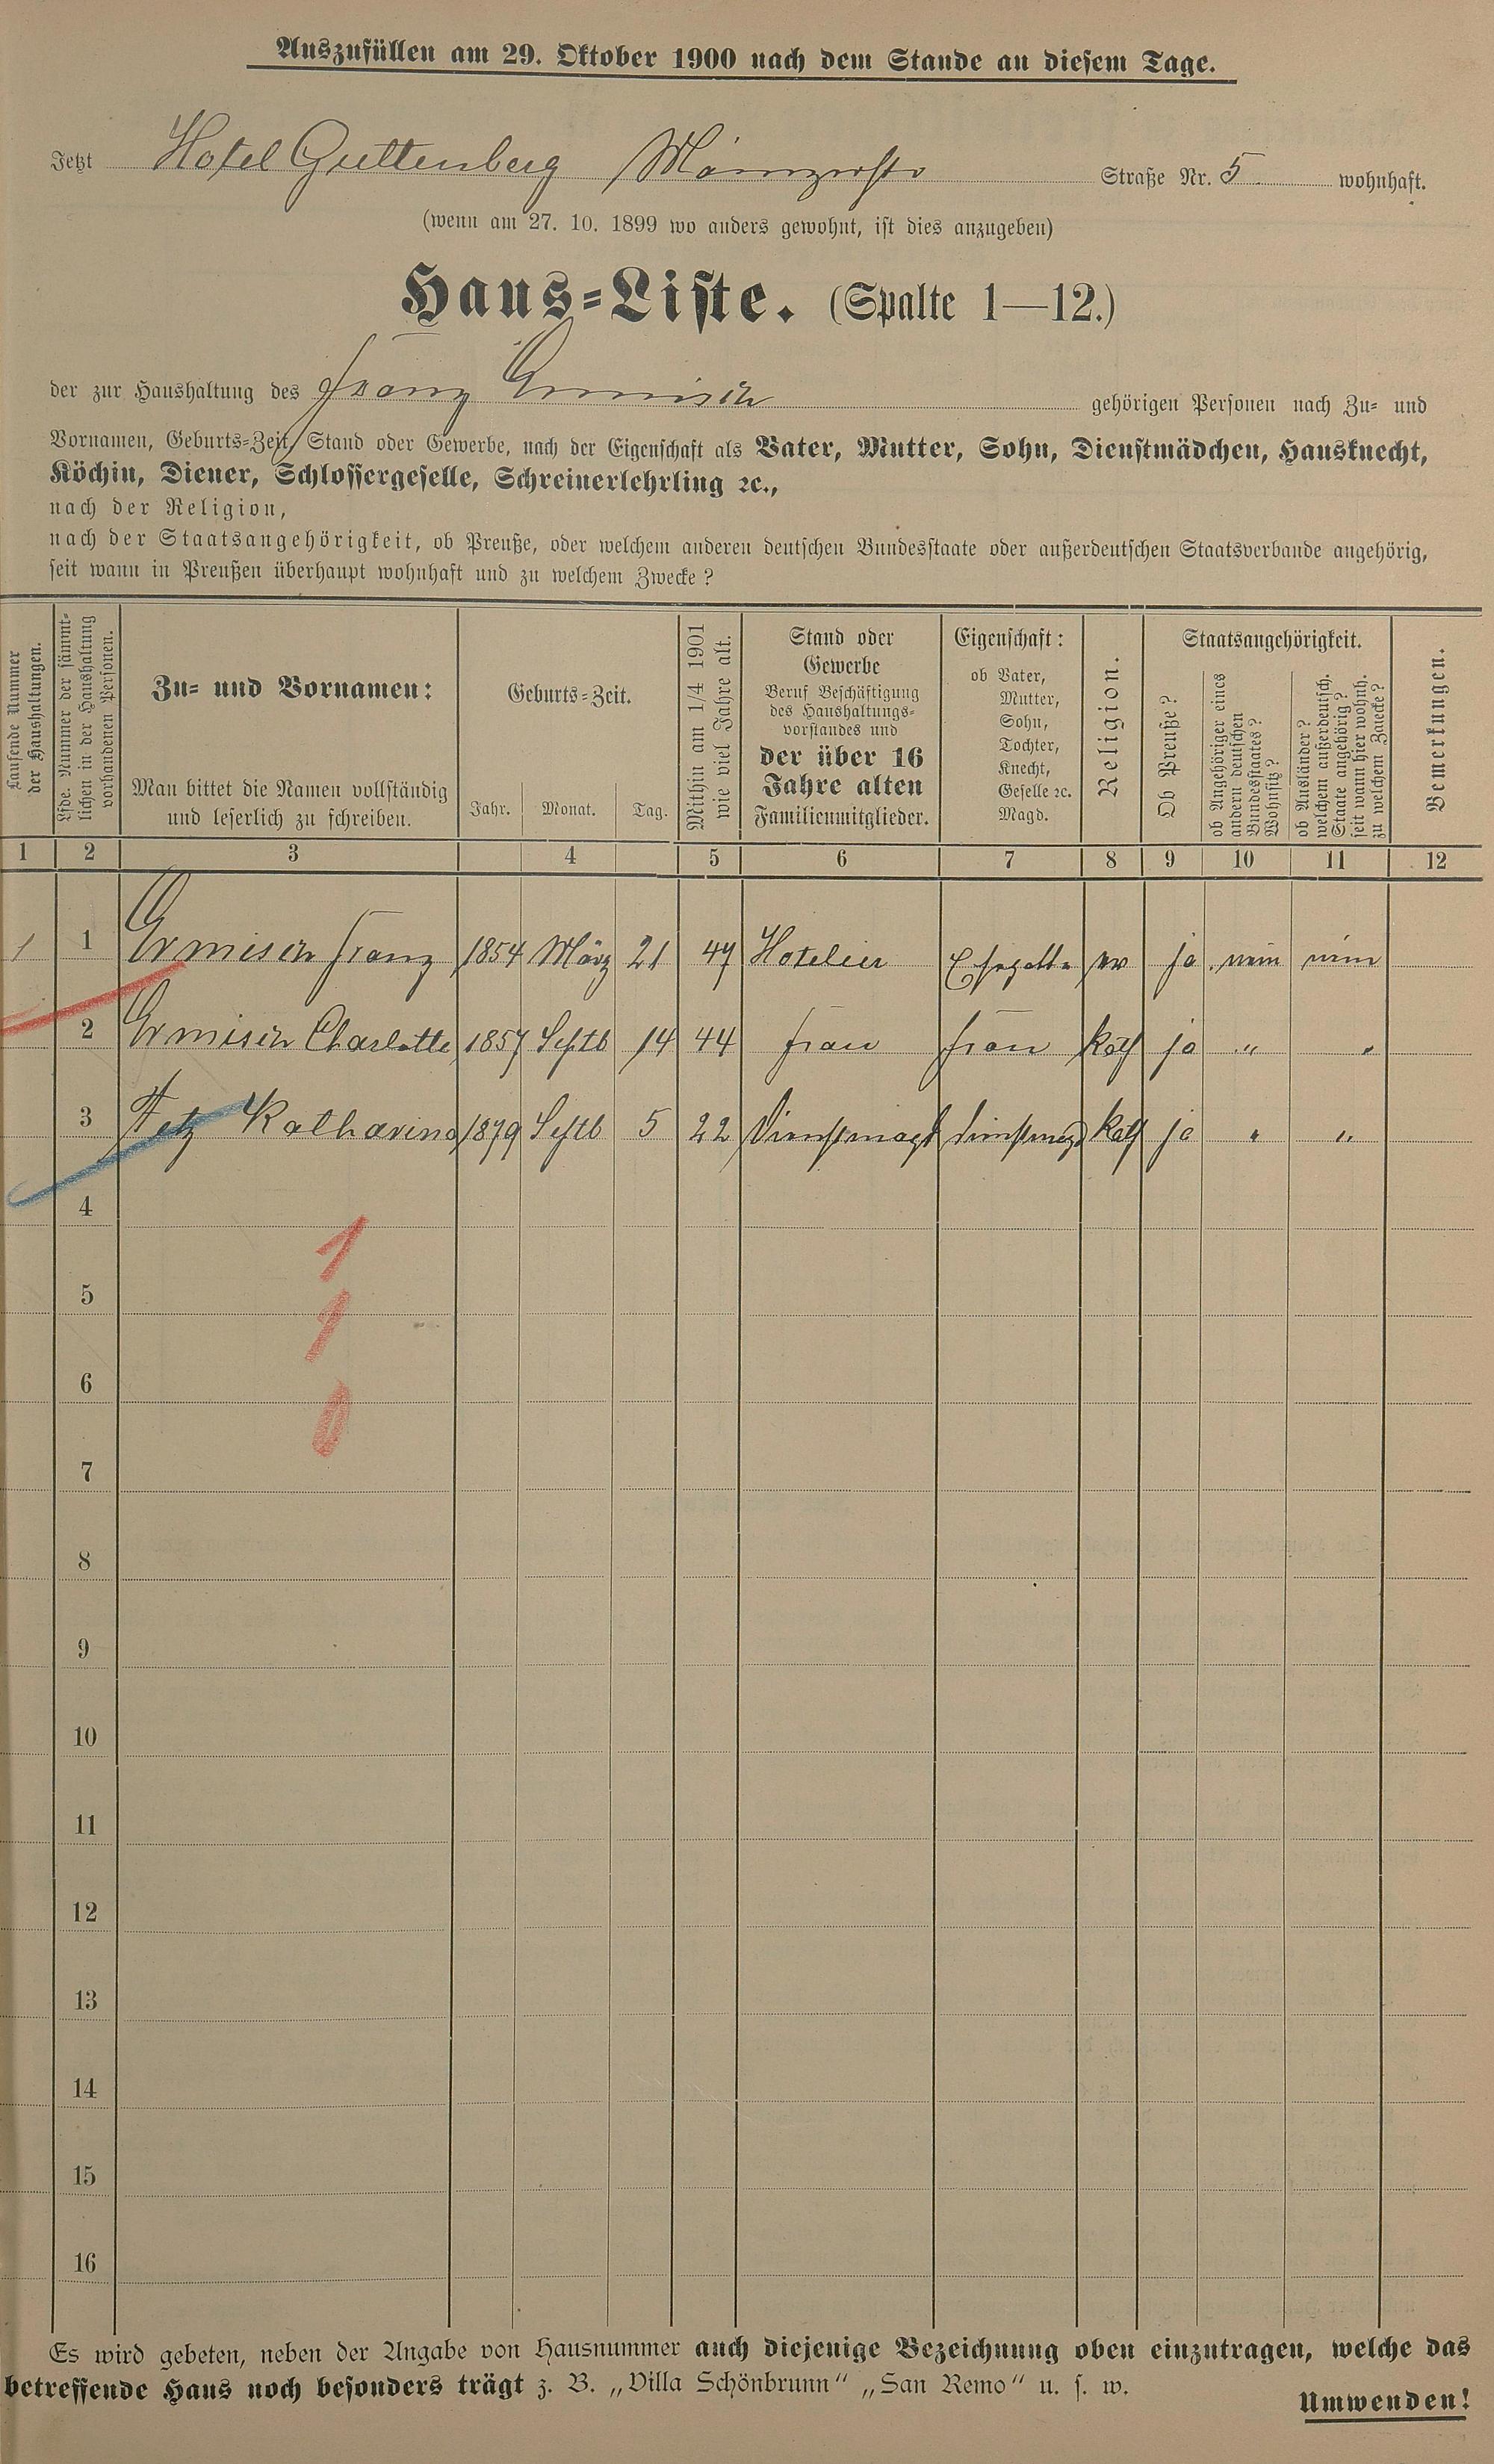 Auszufüllen am 29. Oktober 1900 nach dem Stande an diesem Tage.
Jetzt Hotel Guttenberg Mainzerstr Straße Nr. 5 wohnhaft.
(wenn am 27. 10. 1899 wo anders gewohnt, ist dies anzugeben)
Haus-Liste. (Spalte 1—12.)
der zur Haushaltung des Franz Ermisch gehörigen Personen nach Zu- und
Vornamen, Geburts-Zeit, Stand oder Gewerbe, nach der Eigenschaft als Vater, Mutter, Sohn, Dienstmädchen, Hausknecht,
Köchin, Diener, Schlossergeselle, Schreinerlehrling ꝛc.,
nach der Religion,
nach der Staatsangehörigkeit, ob Preuße, oder welchem anderen deutschen Bundesstaate oder außerdeutschen Staatsverbande angehörig,
seit wann in Preußen überhaupt wohnhaft und zu welchem Zwecke?
Laufende Nummer
der Haushaltungen.
Lfde. Nummer der sämmt-
lichen in der Haushaltung
vorhandenen Personen.
Zu- und Vornamen:
Man bittet die Namen vollständig
und leserlich zu schreiben.
Geburts-Zeit.
Jahr. Monat. Tag.
Mithin am 1/4 1901
wie viel Jahre alt.
Stand oder
Gewerbe
Beruf Beschäftigung
des Haushaltungs-
vorstandes und
der über 16
Jahre alten
Familienmitglieder.
Eigenschaft:
ob Vater,
Mutter,
Sohn,
Tochter,
Knecht,
Geselle ꝛc.
Magd.
Religion.
Staatsangehörigkeit.
Ob Preuße?
ob Angehöriger eines
andern deutschen
Bundesstaates?
Wohnsitz?
ob Ausländer?
welchem außerdeutsch.
Staate angehörig?
seit wann hier wohnh.
zu welchem Zwecke?
Bemerkungen.
1 2 3 4 5 6 7 8 9 10 11 12
1 1 Ermisch Franz 1854 März 21 47 Hotelier Ehegatte ev ja nein nein
2 Ermisch Charlotte 1857 Septb 14 44 Frau Frau Kath ja " "
3 Fetz Katharina 1879 Septb 5 22 Dienstmagd Dienstmagd Kath ja " "
4
1
5
1
6
0
7
8
9
10
11
12
13
14
15
16
Es wird gebeten, neben der Angabe von Hausnummer auch diejenige Bezeichnung oben einzutragen, welche das
betreffende Haus noch besonders trägt z. B. „Villa Schönbrunn" „San Remo" u. s. w.
Umwenden!